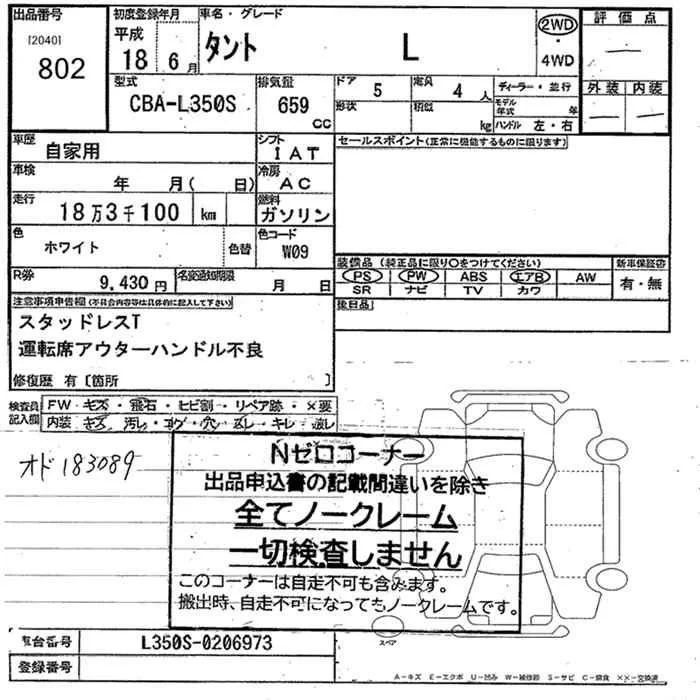 出品番号
[2040]
802
初度登録年月
平成
18年6月
車名・グレード
タント L
2WD
・
4WD
評価点
―
外装 内装
― ―
型式
CBA-L350S
排気量
659
CC
ドア 5
定員 4人
形状
積載 kg
ディーラー・並行
モデル年式 年
ハンドル 左・右
車歴
自家用
シフト
IAT
セールスポイント(正常に機能するものに限ります)
車検
年 月( 日)
冷房
AC
走行
18万3千100 km
燃料
ガソリン
色
ホワイト
色替
色コード
W09
装備品 (純正品に限り○をつけてください)
新車保証書
PS PW ABS エアB AW
有・無
SR ナビ TV カワ
R券
9,430円
名変通知期限
月 日
後日品
注意事項申告欄(不具合内容等は具体的に記入して下さい)
スタッドレスT
運転席アウターハンドル不良
修復歴 有〔箇所 〕
検査員記入欄
FW キズ・飛石・ヒビ割・リペア跡・×要
内装 キズ 汚し・コゲ・穴
キレ
オド183089
Nゼロコーナー
出品申込書の記載間違いを除き
全てノークレーム
一切検査しません
このコーナーは自走不可も含みます。
搬出時、自走不可になってもノークレームです。
車台番号
L350S-0206973
登録番号
スペア
A-キズ E-エクボ U-凹み W-補修跡 S-サビ C-腐食 ××-交換済